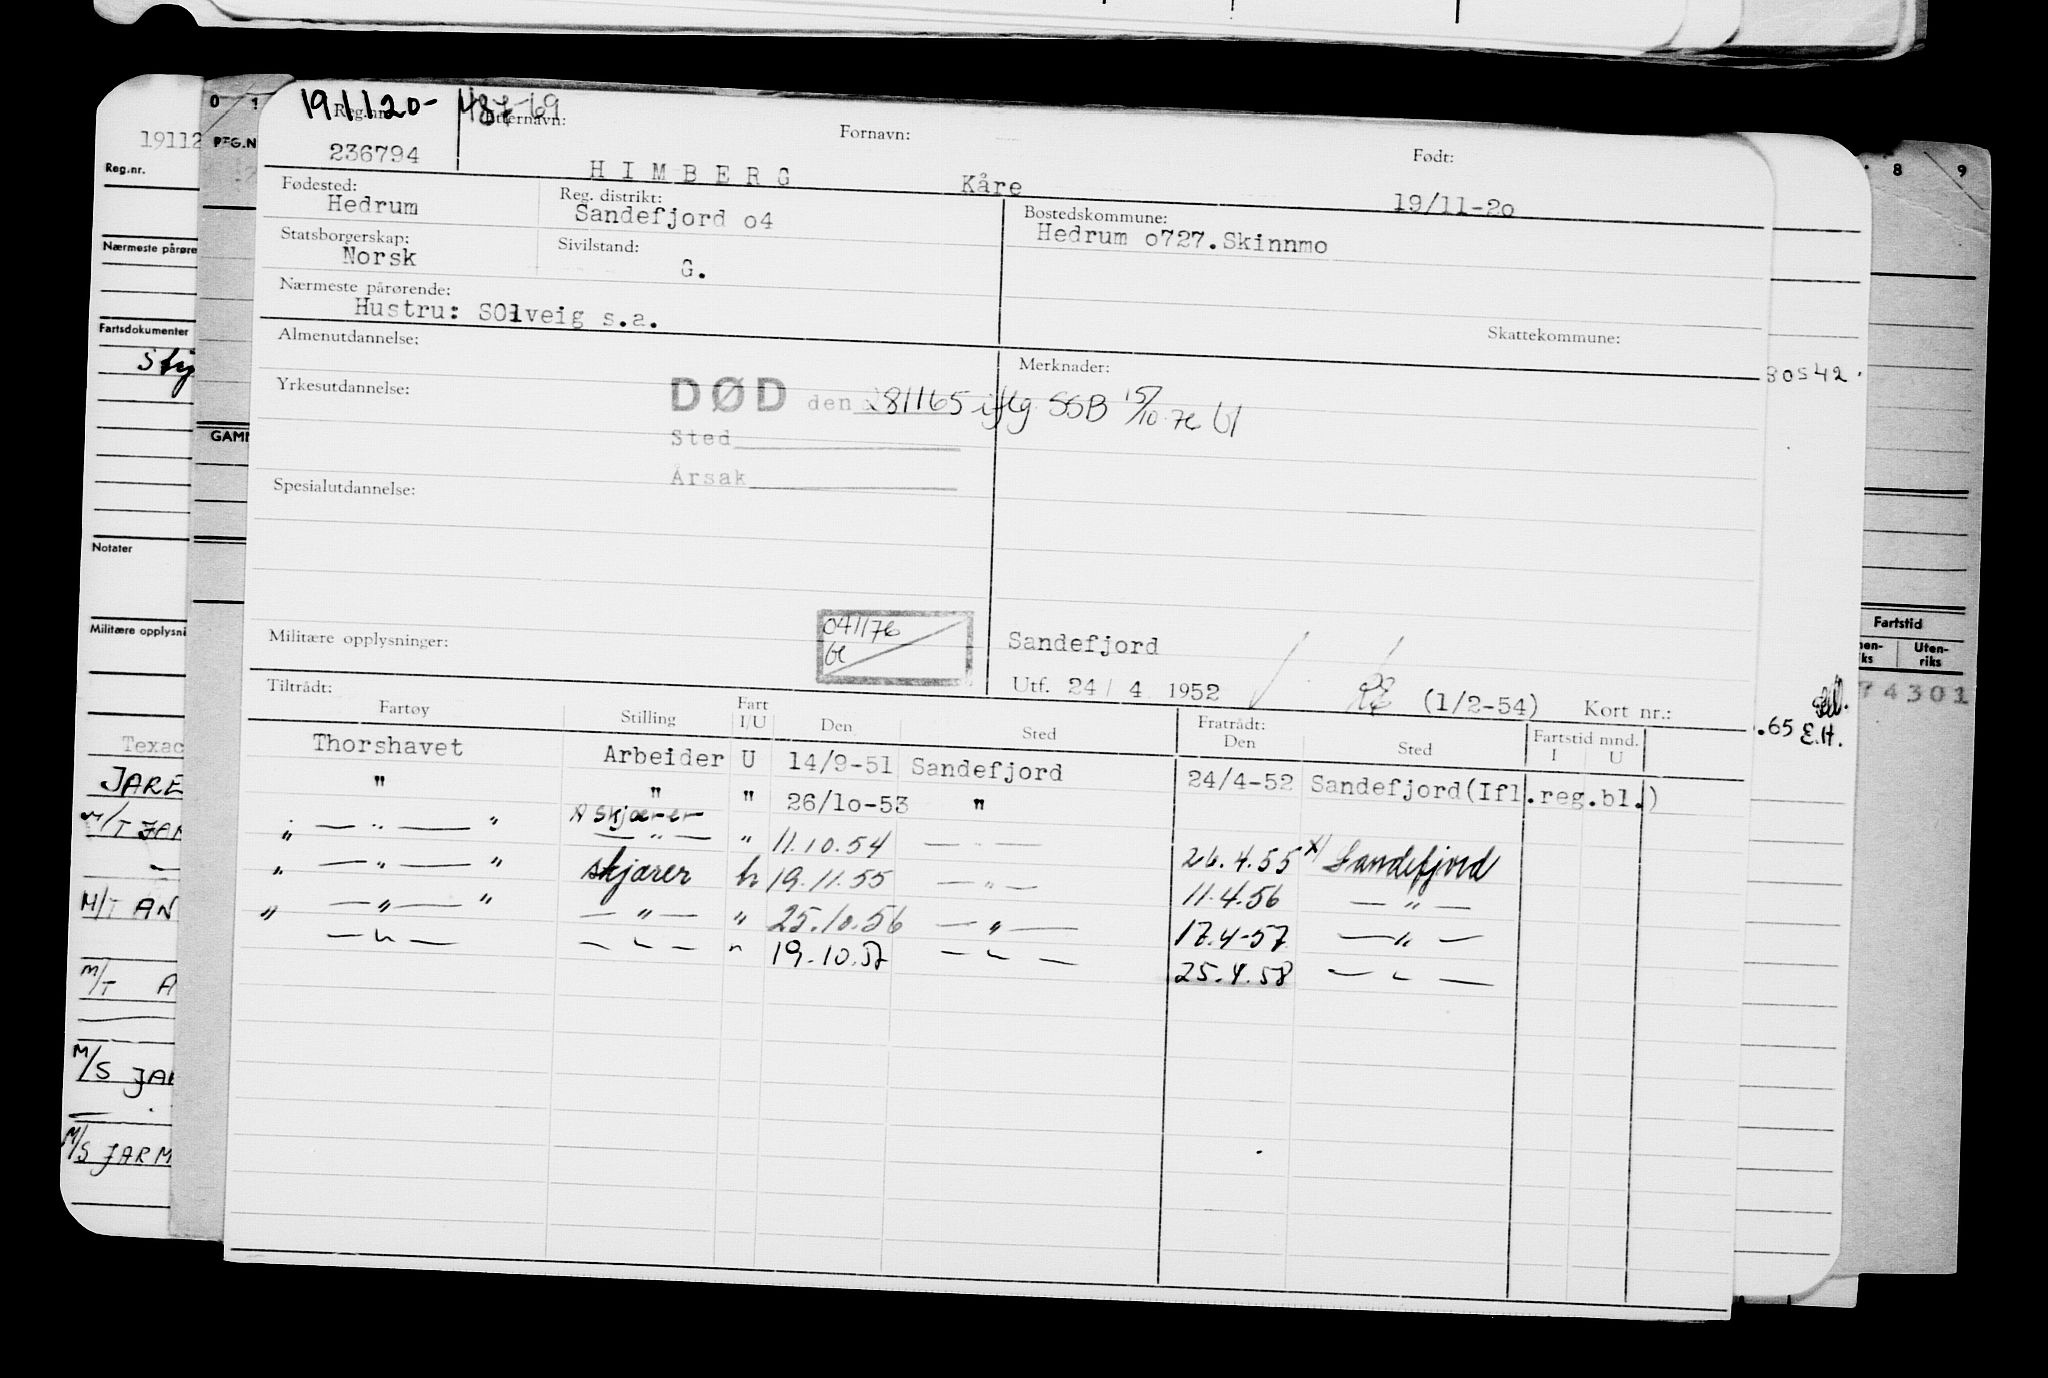 191120-
Reg.nr. Etternavn: Fornavn: Født:
236794 HIMBERG Kåre 19/11-2o
Fødested: Reg. distrikt: Bostedskommune:
Hedrum Sandefjord o4 Hedrum o727.Skinnmo
Statsborgerskap: Sivilstand:
Norsk G.
Nærmeste pårørende:
Hustru: SOlveig s.a.
Skattekommune:
Almenutdannelse: Merknader:
Yrkesutdannelse:
DØD den 281165 iflg. SSB 15/10.76 bl
Sted
Årsak
Spesialutdannelse:
041176
bl
Militære opplysninger: Sandefjord
Utf. 24/ 4 1952 (1/2-54) Kort nr.:
Tiltrådt: Fratrådt: Fartstid mnd.
Fartøy Stilling Fart I/U Den Sted Den Sted I U
Thorshavet Arbeider U 14/9-51 Sandefjord 24/4-52 Sandefjord(Ifl.reg.bl.)
" " " 26/1o-53 "
" — " — " A skjærer
— " — " 11.10.54 — " — 26.4.55 x) Sandefjord
" — " — " skjærer h 19.11.55 — " — 11.4.56 — " —
" — " — " — " — " 25.10.56 — " — 17.4-57 — " —
— " — — " — " 19.10.57 — " — 25.4.58 — " —
19112
Reg.nr.
Nærmeste pårøre
Fartsdokumenter
Notater
Militære opplysni
Texac
JARE
M/T JAR
M/T AN
M/T A
M/S JAR
M/S JARM
0 1
REG.N
GAMM
8 9
30542
Fartstid
nen-
ks
Uten-
riks
74301
.65 E.H.